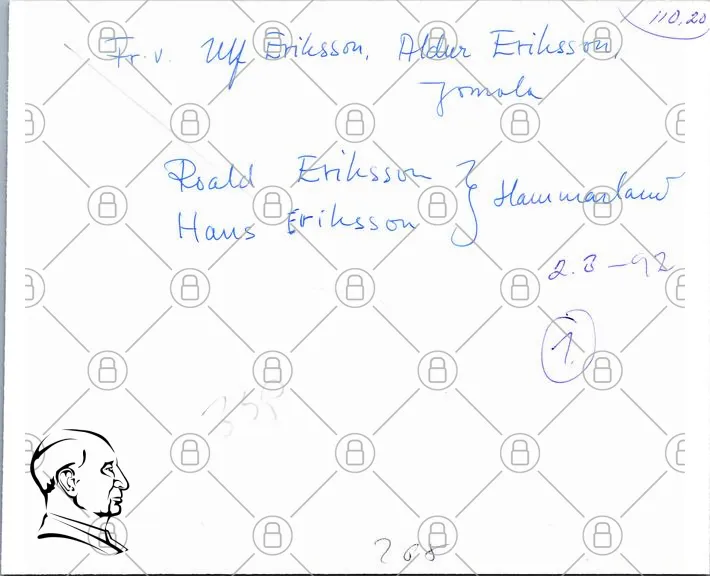 110.20
Fr. v. Ulf Eriksson, Aldur Eriksson,
Jomala
Roald Eriksson
Hans Eriksson } Hammarland
2.3-92
1.
355
265